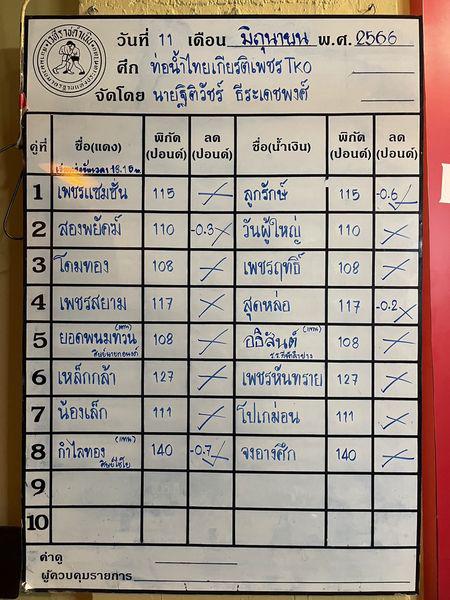 วันที่ 11 เดือน มิถุนายน พ.ศ. 2566
ศึก ท่อน้ำไทยเกียรติเพชร TKO
จัดโดย นายฐิติวัชร์ ธีระเดชพงศ์
คู่ที่ ชื่อ(แดง) พิกัด (ปอนด์) ลด (ปอนด์) ชื่อ(น้ำเงิน) พิกัด (ปอนด์) ลด (ปอนด์)
1 เพชรแชมชั่น 115 ลูกรักษ์ 115 -0.6
2 สองพยัคฆ์ 110 -0.3 วันผู้ใหญ่ 110
3 โดมทอง 108 เพชรฤทธิ์ 108
4 เพชรสยาม 117 สุดหล่อ 117 -0.2
5 ยอดพนมทวน (แทน) 108 อธิสันต์ (แทน) 108
6 เหล็กกล้า 127 เพชรหินทราย 127
7 น้องเล็ก 111 โปเกม่อน 111
8 กำไลทอง (แทน) 140 -0.7 จงอางศึก 140
9
10
ค่าดู
ผู้ควบคุมรายการ